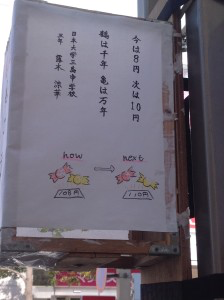 今は8円 次は10円
鶴は千年 亀は万年
日本大学三島中学校
露木
now → next
108円 110円